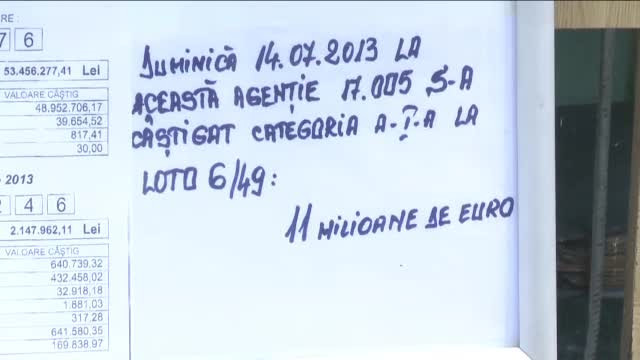 RE :
7 6
53.456.277,41 Lei
VALOARE CÂȘTIG
48.952.706,17
39.654,52
817,41
30,00
2013
2 4 6
2.147.962,11 Lei
VALOARE CÂȘTIG
640.739,32
432.458,02
32.918,18
1.681,03
317,28
641.580,35
169.838,97
DUMINICĂ 14.07.2013 LA
ACEASTĂ AGENȚIE 17.005 S-A
CÂȘTIGAT CATEGORIA A-I-A LA
LOTO 6/49:
11 MILIOANE DE EURO